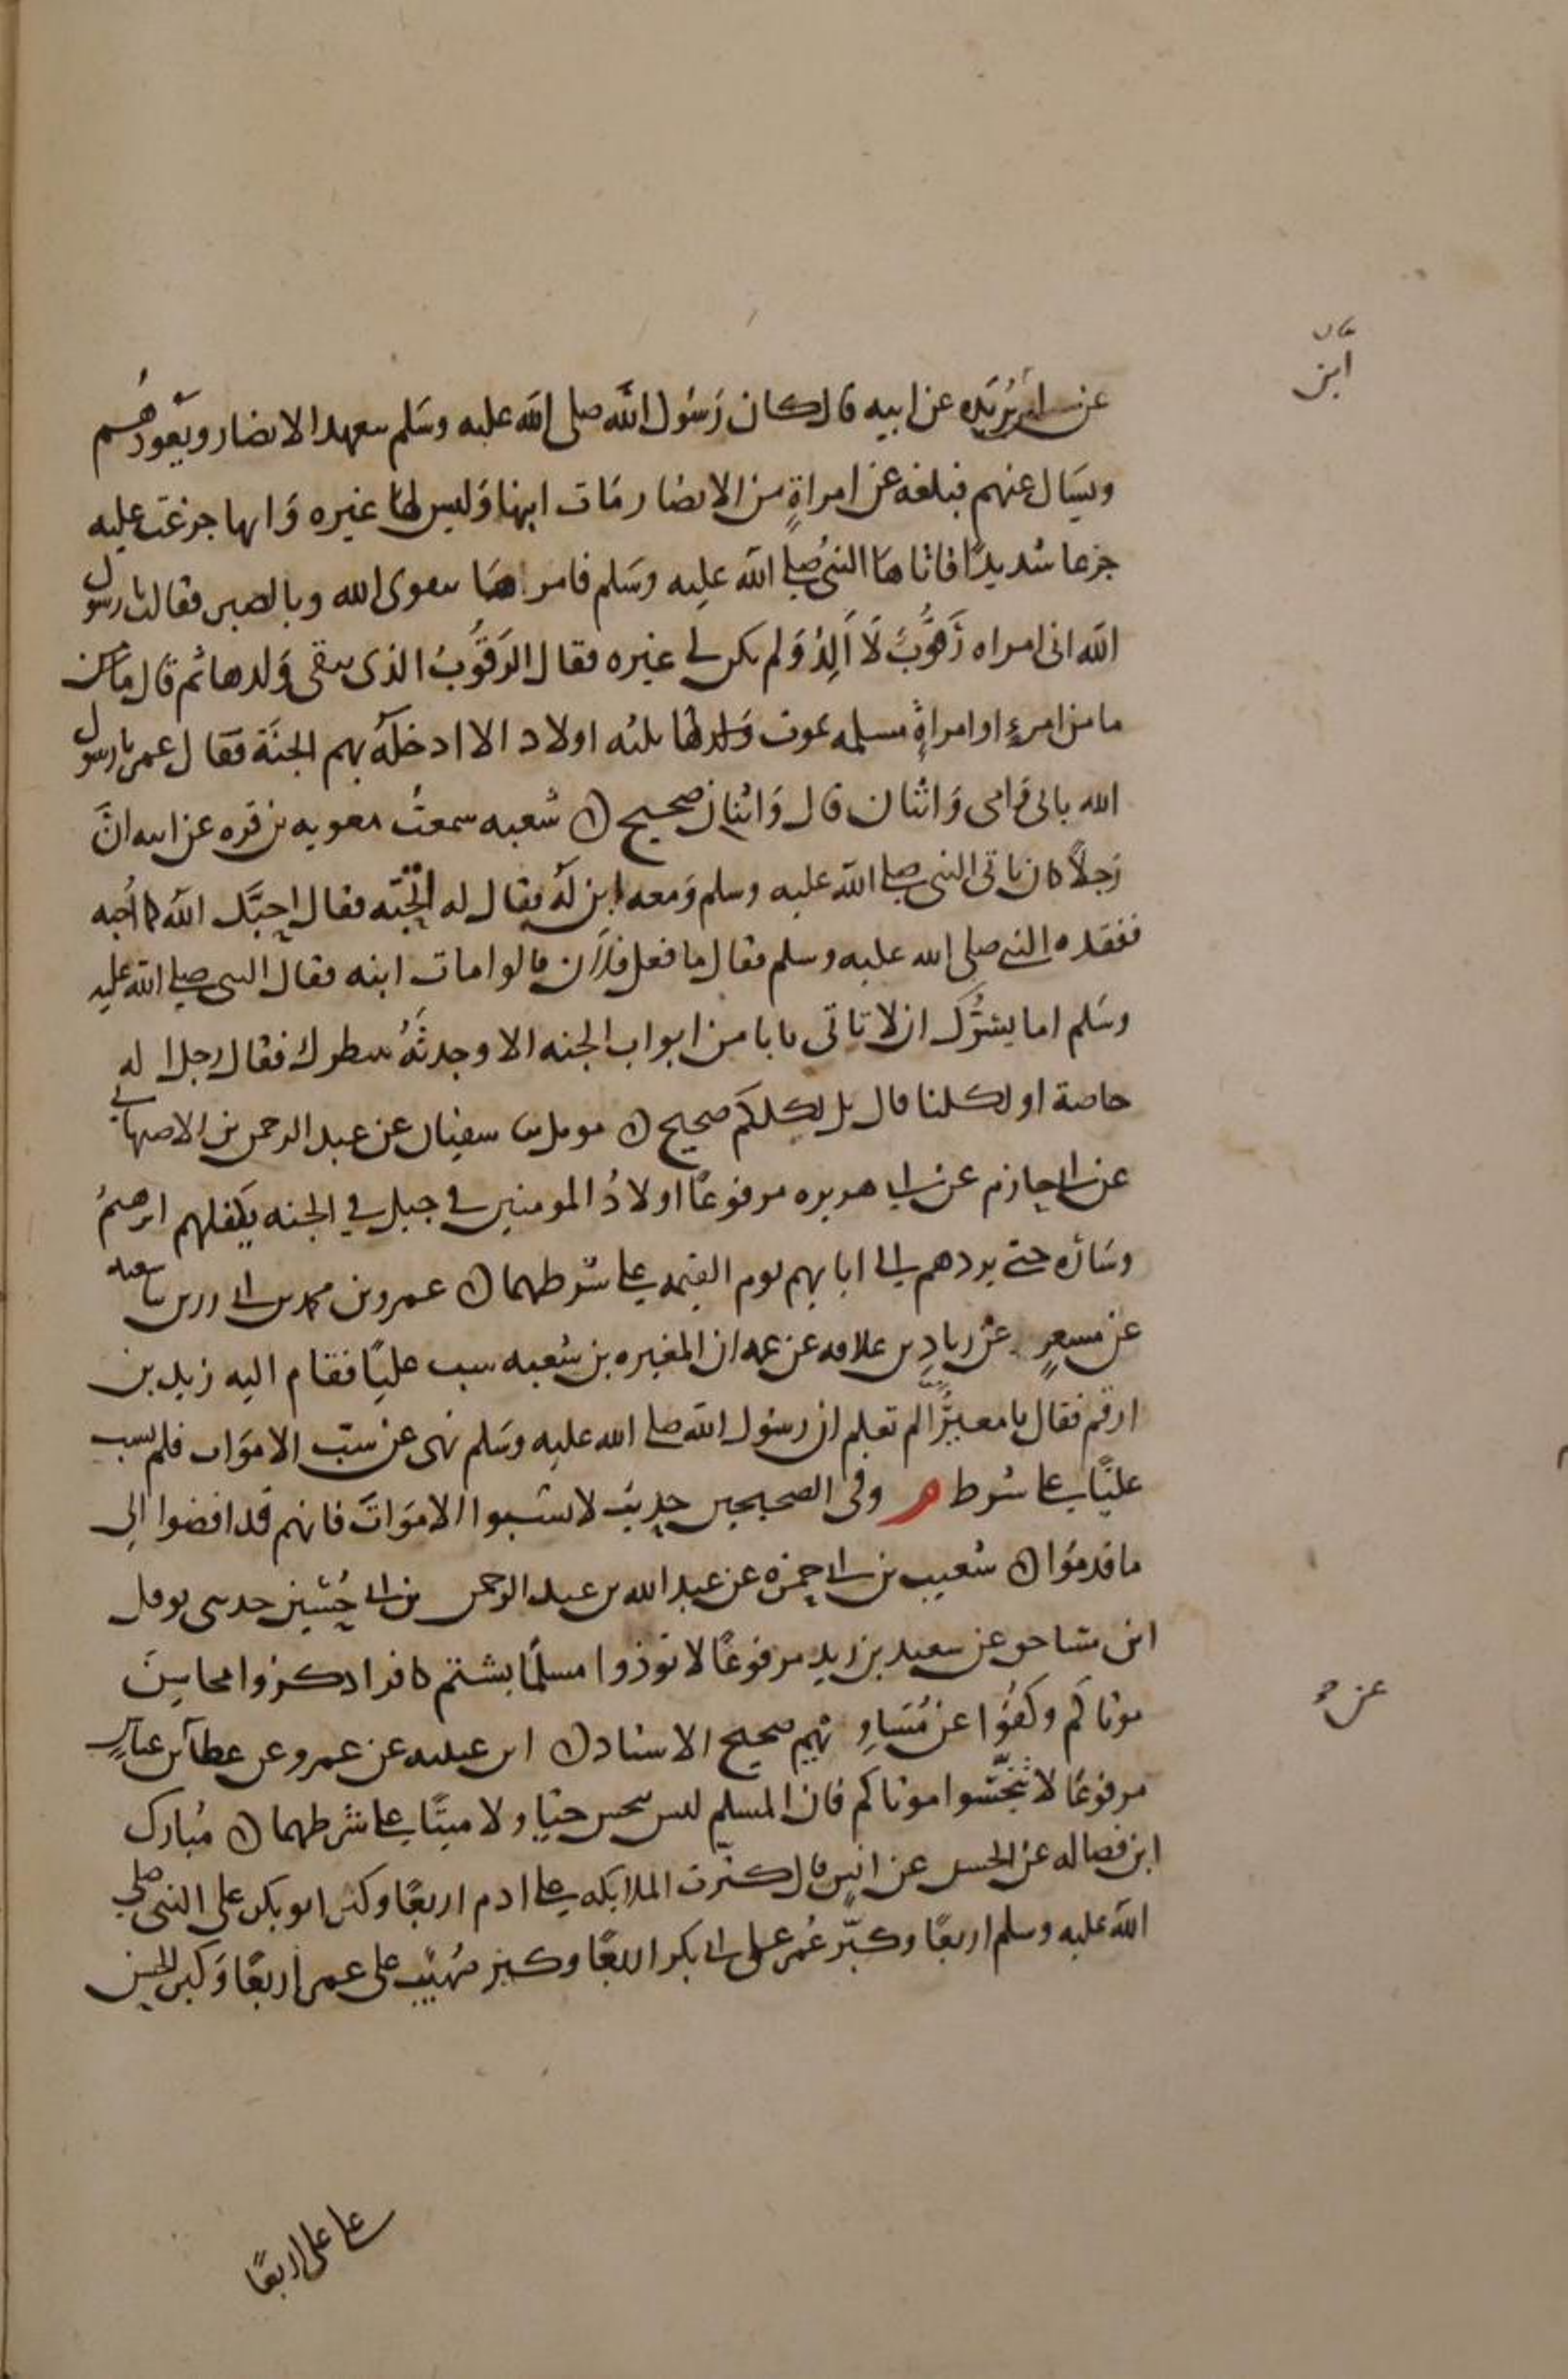 عن ابن بريده عن ابيه قال كان رَسُول الله صلى الله عليه وسَلم يتعهد الانصار ويَعُودُهُم
ابن
ويسَال عنهم فبلغه عن امراةٍ من الانصار مَات ابنها وَليس لها غيره وَانها جزعَت عليه
جزعا شديدًا فاتاها النبي صلى الله عليه وسَلم فامرها بتقوى الله وبالصبر فقالت يا رسول
الله انى امراه رَقُوبٌ لَا اَلِدُ وَلم يكن لي غيره فقال الرَقُوبُ الذى يبقى وَلدها ثم قال مامن
ما من امرءٍ او امراةٍ مسلمه يموت وَلدها ثلثه اولاد الا ادخلَهُ بهم الجنَة فقال عمر يا رسول
الله بابى وَامى وَاثنان قال وَاثنان صحيح ۞ شعبه سمعتُ معويه بن قره عن ابيه انَّ
رَجلاً كان ياتى النبى صلى الله عليه وسلم وَمعه ابن لَه فقال له اتحبّه فقال احبَّك الله كما اُحبه
ففقده النبي صلى الله عليه وسلم فقال ما فعل فلان قالوا مات ابنه فقال النبى صلى الله عليه
وسَلم اما يسُرُّك ان لا تاتى بابا من ابواب الجنه الا وجدتَهُ ينتظرك فقال رجل ا له
خاصة او لكلنا قال بل لكلكم صحيح ۞ مومل ثنا سفيان عن عبد الرحمن بن الاصبهانى
عن ابي حازم عن ابي هريره مرفوعًا اولادُ المومنين في جبل في الجنه يكفلهم ابرهيمُ
وسَارَه حتى يردهم الي ابايهم يوم القيمه علي شرطهما ۞ عمرو بن محمد بن ابي رزين ثنا شعبه
عن مسعرٍ عن زيادِ بن علاقه عن عمه ان المغيره بن شعبه سب عليًا فقام اليه زيد بن
ارقم فقال يا مغيرُ الم تعلم ان رسُول الله صلى الله عليه وسَلم نهى عن سَبّ الاموَات فلم تسب
عليًا علي شرط م وفى الصحيحين حديث لا تسبوا الاموَاتَ فانهم قد افضوا الي
ما قدمُوا ۞ شعيب بن ابي حمزه عن عبد الله بن عبد الرحمن بن ابي حُسَين حدثنى نوفل
ابن مساحق عن سعيد بن زيد مرفوعًا لا توذوا مسلمًا بشتم كافر اذكروا محاسِنَ
عن
موتاكم وكفُّوا عن مُسَاوِيهم صحيح الاسناد ۞ ابن عيينه عن عمرو عن عطا عن ابن عباسٍ
مرفوعًا لا تُنَجّسُوا موتاكم فان المسلم ليس بنجس حيّا ولا ميتًا علي شرطهما ۞ مُبارك
ابن فضاله عن الحسن عن انسٍ قال كبّرت الملايكه علي ادم اربعًا وكبر ابو بكر على النبى صلى
الله عليه وسلم اربعًا وكبّر عُمر على ابي بكر اربعًا وكبر صُهَيْب على عمر اربعًا وَكبر الحسَن
علي على اربعًا